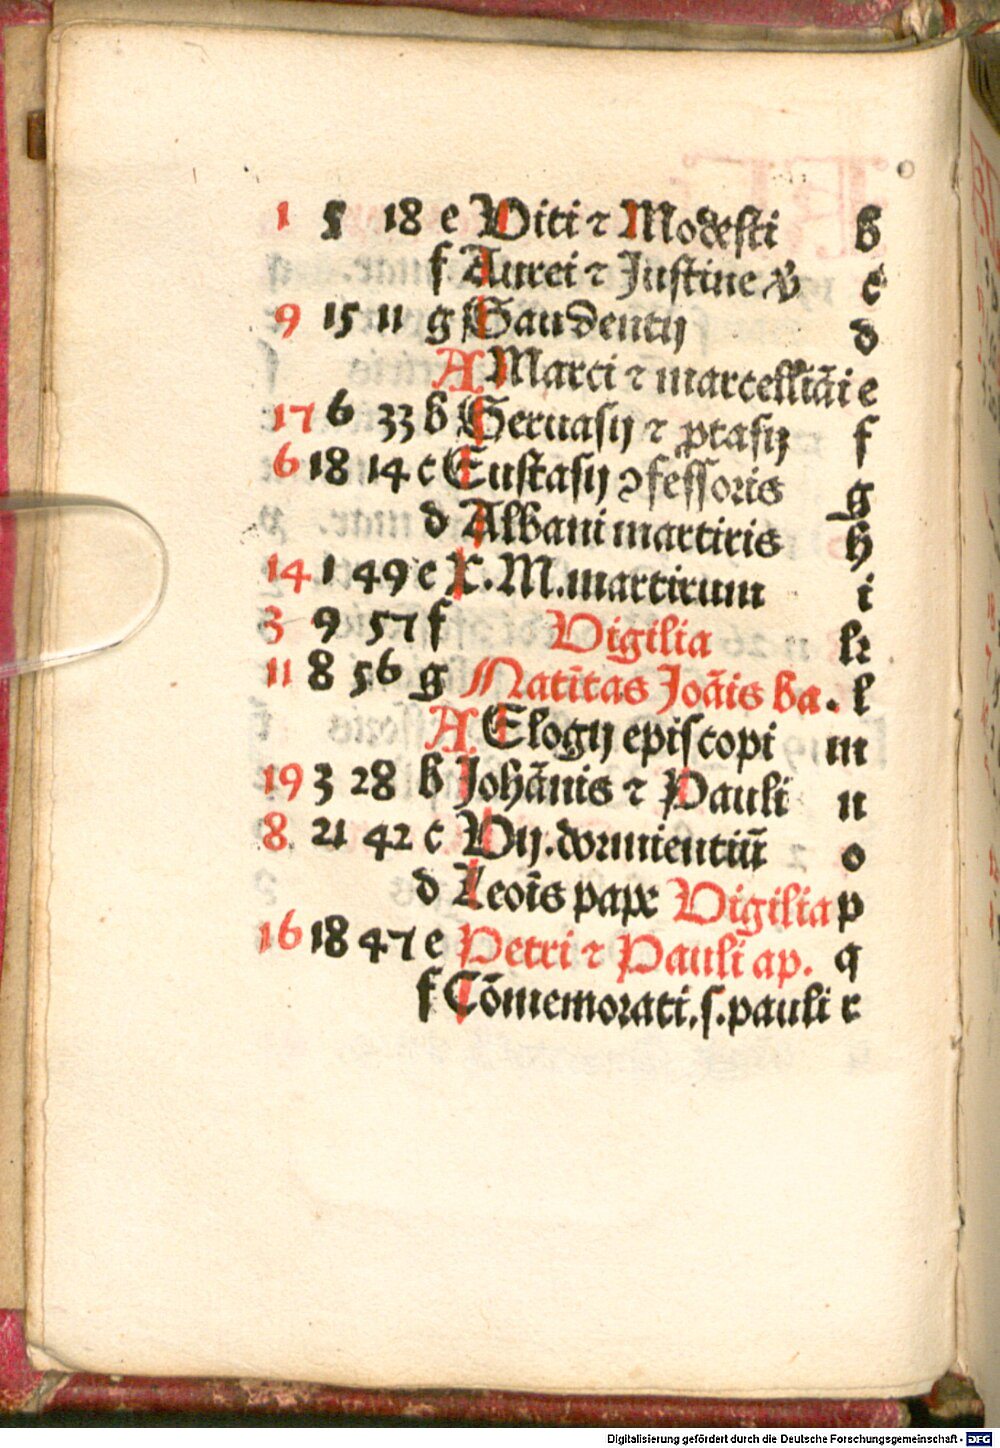 1 5 18 e Viti ⁊ Modesti b
f Aurei ⁊ Justine v̄ c
9 15 11 g Gaudentij d
A Marci ⁊ marcelliāi e
17 6 33 b Geruasij ⁊ ꝓtasij f
6 18 14 c Eustasij ꝯfessoris g
d Albani martiris h
14 1 49 e X.M.martirum i
3 9 57 f Vigilia k
11 8 56 g Natiītas Joāis ba. l
A Elogij episcopi m
19 3 28 b Johānis ⁊ Pauli n
8 21 42 c Vij.dormientiū o
d Leoīs pape Vigilia p
16 18 47 e Petri ⁊ Pauli ap. q
f Cōmemorati.s.pauli r
Digitalisierung gefördert durch die Deutsche Forschungsgemeinschaft - DFG